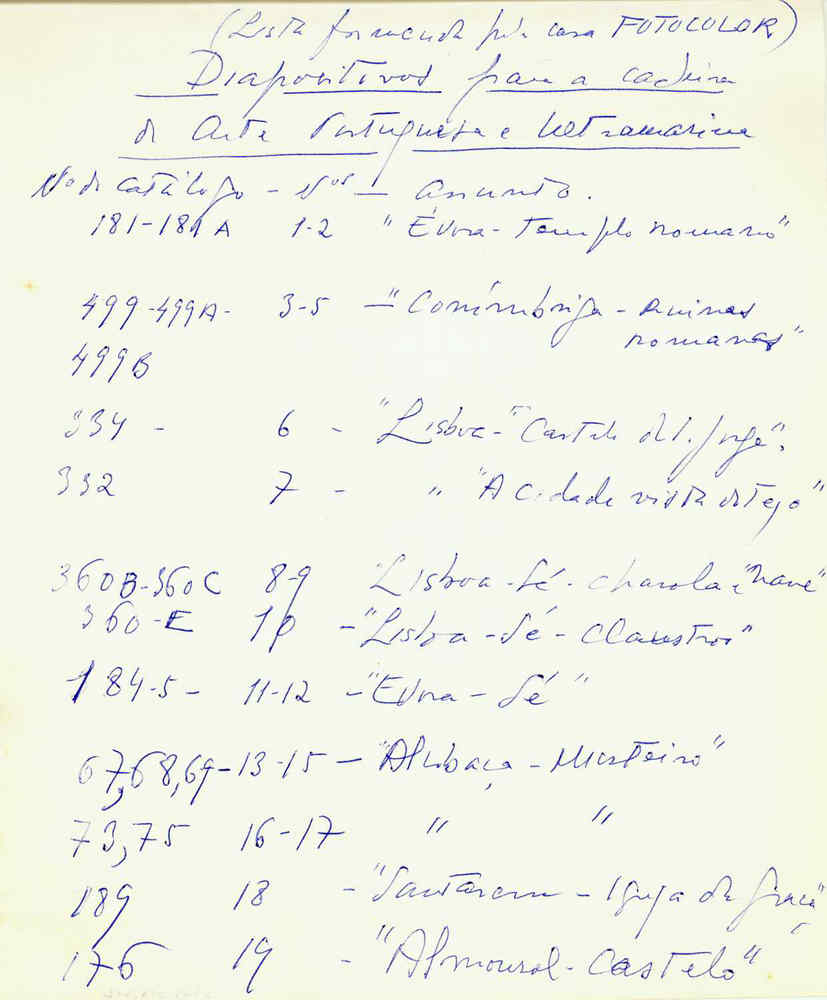 (Lista fornecida pela casa FOTOCOLOR)
Diapositivos para a cadeira
de Arte Portuguesa e Ultramarina
Nº de catálogo - Nos - Assunto.
181-181A 1-2 "Évora - Templo romano"
499-499A- 3-5 - "Conímbriga - Ruinas
romanas"
499B
334 - 6 - "Lisboa-" Castelo de S. Jorge".
332 7 - " "A Cidade vista do Tejo"
360B-360C 8-9 "Lisboa - Sé - charola e "nave"
360-E 10 - "Lisboa - Sé - Claustros"
184-5 - 11-12 - "Evora - Sé"
67,68,69 - 13-15 - "Alcobaça - Mosteiro"
73,75 16-17 " "
189 18 - "Santarem - Igreja da Graça"
176 19 - "Almourol - Castelo"